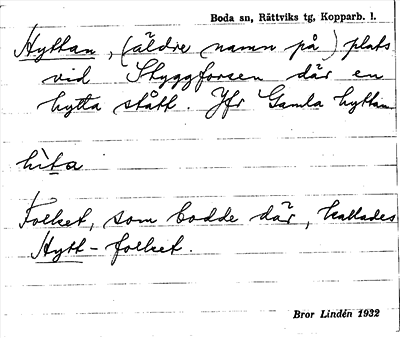 Boda sn, Rättviks tg, Kopparb. l.
Hyttan, (äldre namn på) plats
vid Styggforsen där en
hytta stått. Jfr Gamla hyttan
hìta
Folket, som bodde där, kallades
Hytt-folket.
Bror Lindén 1932